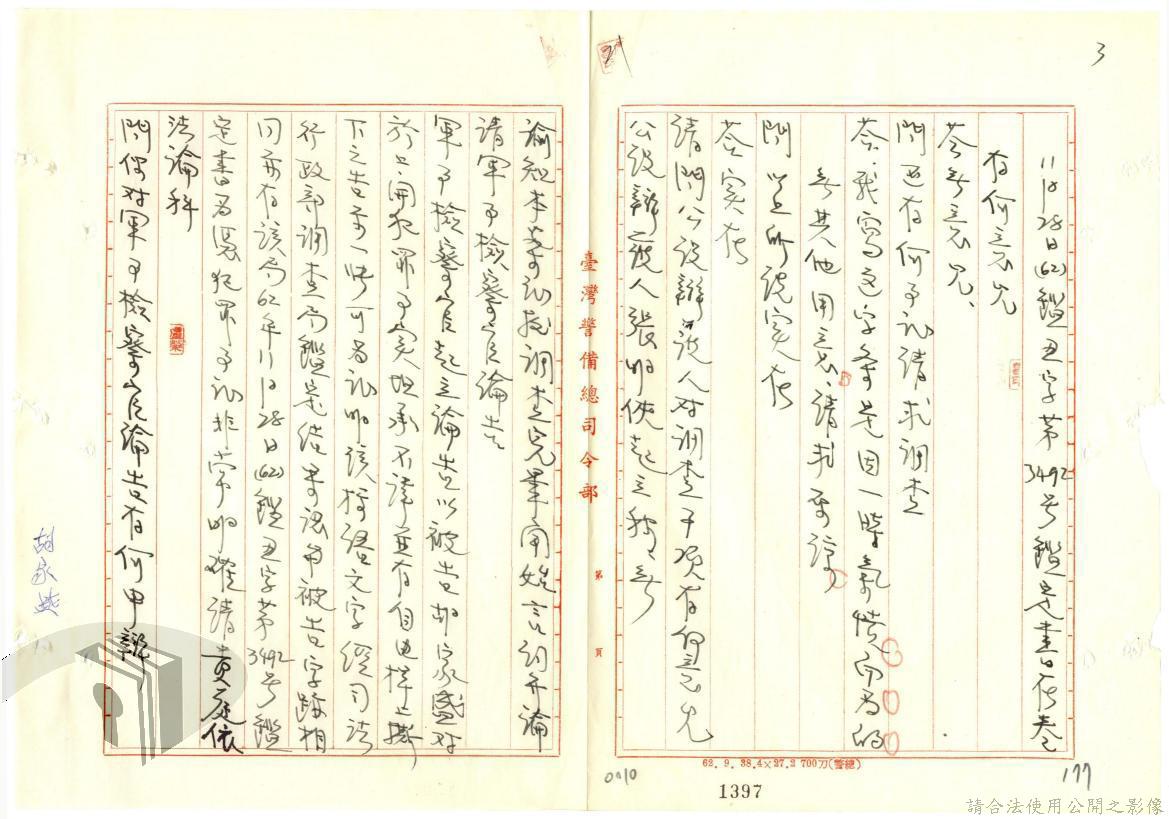 3
11月28日(62)鑑丑字第3492号鑑定書在卷
有何意見
答：無意見、
問：还有何予訊請求調查
答：我寫文字条是因一時氣憤而为的
無其他用意請求原諒
問：以上所說實在
答：實在
請問公設辯護人对調查事項有何意見
公設辯護人張明俠起立称：無
臺灣警備總司令部
第 頁
諭知本案訊於調查完畢開始言詞弁論
請軍事檢察官論告
軍事檢察官起立論告以被告胡家盛对
於上開犯罪事實坦承不諱並有自由椅上撕
下之告示一帋可为証明該標語文字經司法
行政部調查局鑑定結果認与被告字跡相
同亦有該局62年11月28日(62)鑑丑字第3492号鑑
定書为憑犯罪事証非常明確請貴庭依
法論科
問：你对軍事檢察官論告有何申辯
62. 9. 38.4×27.2 700刀(警總)
0010
1397
177
請合法使用公開之影像